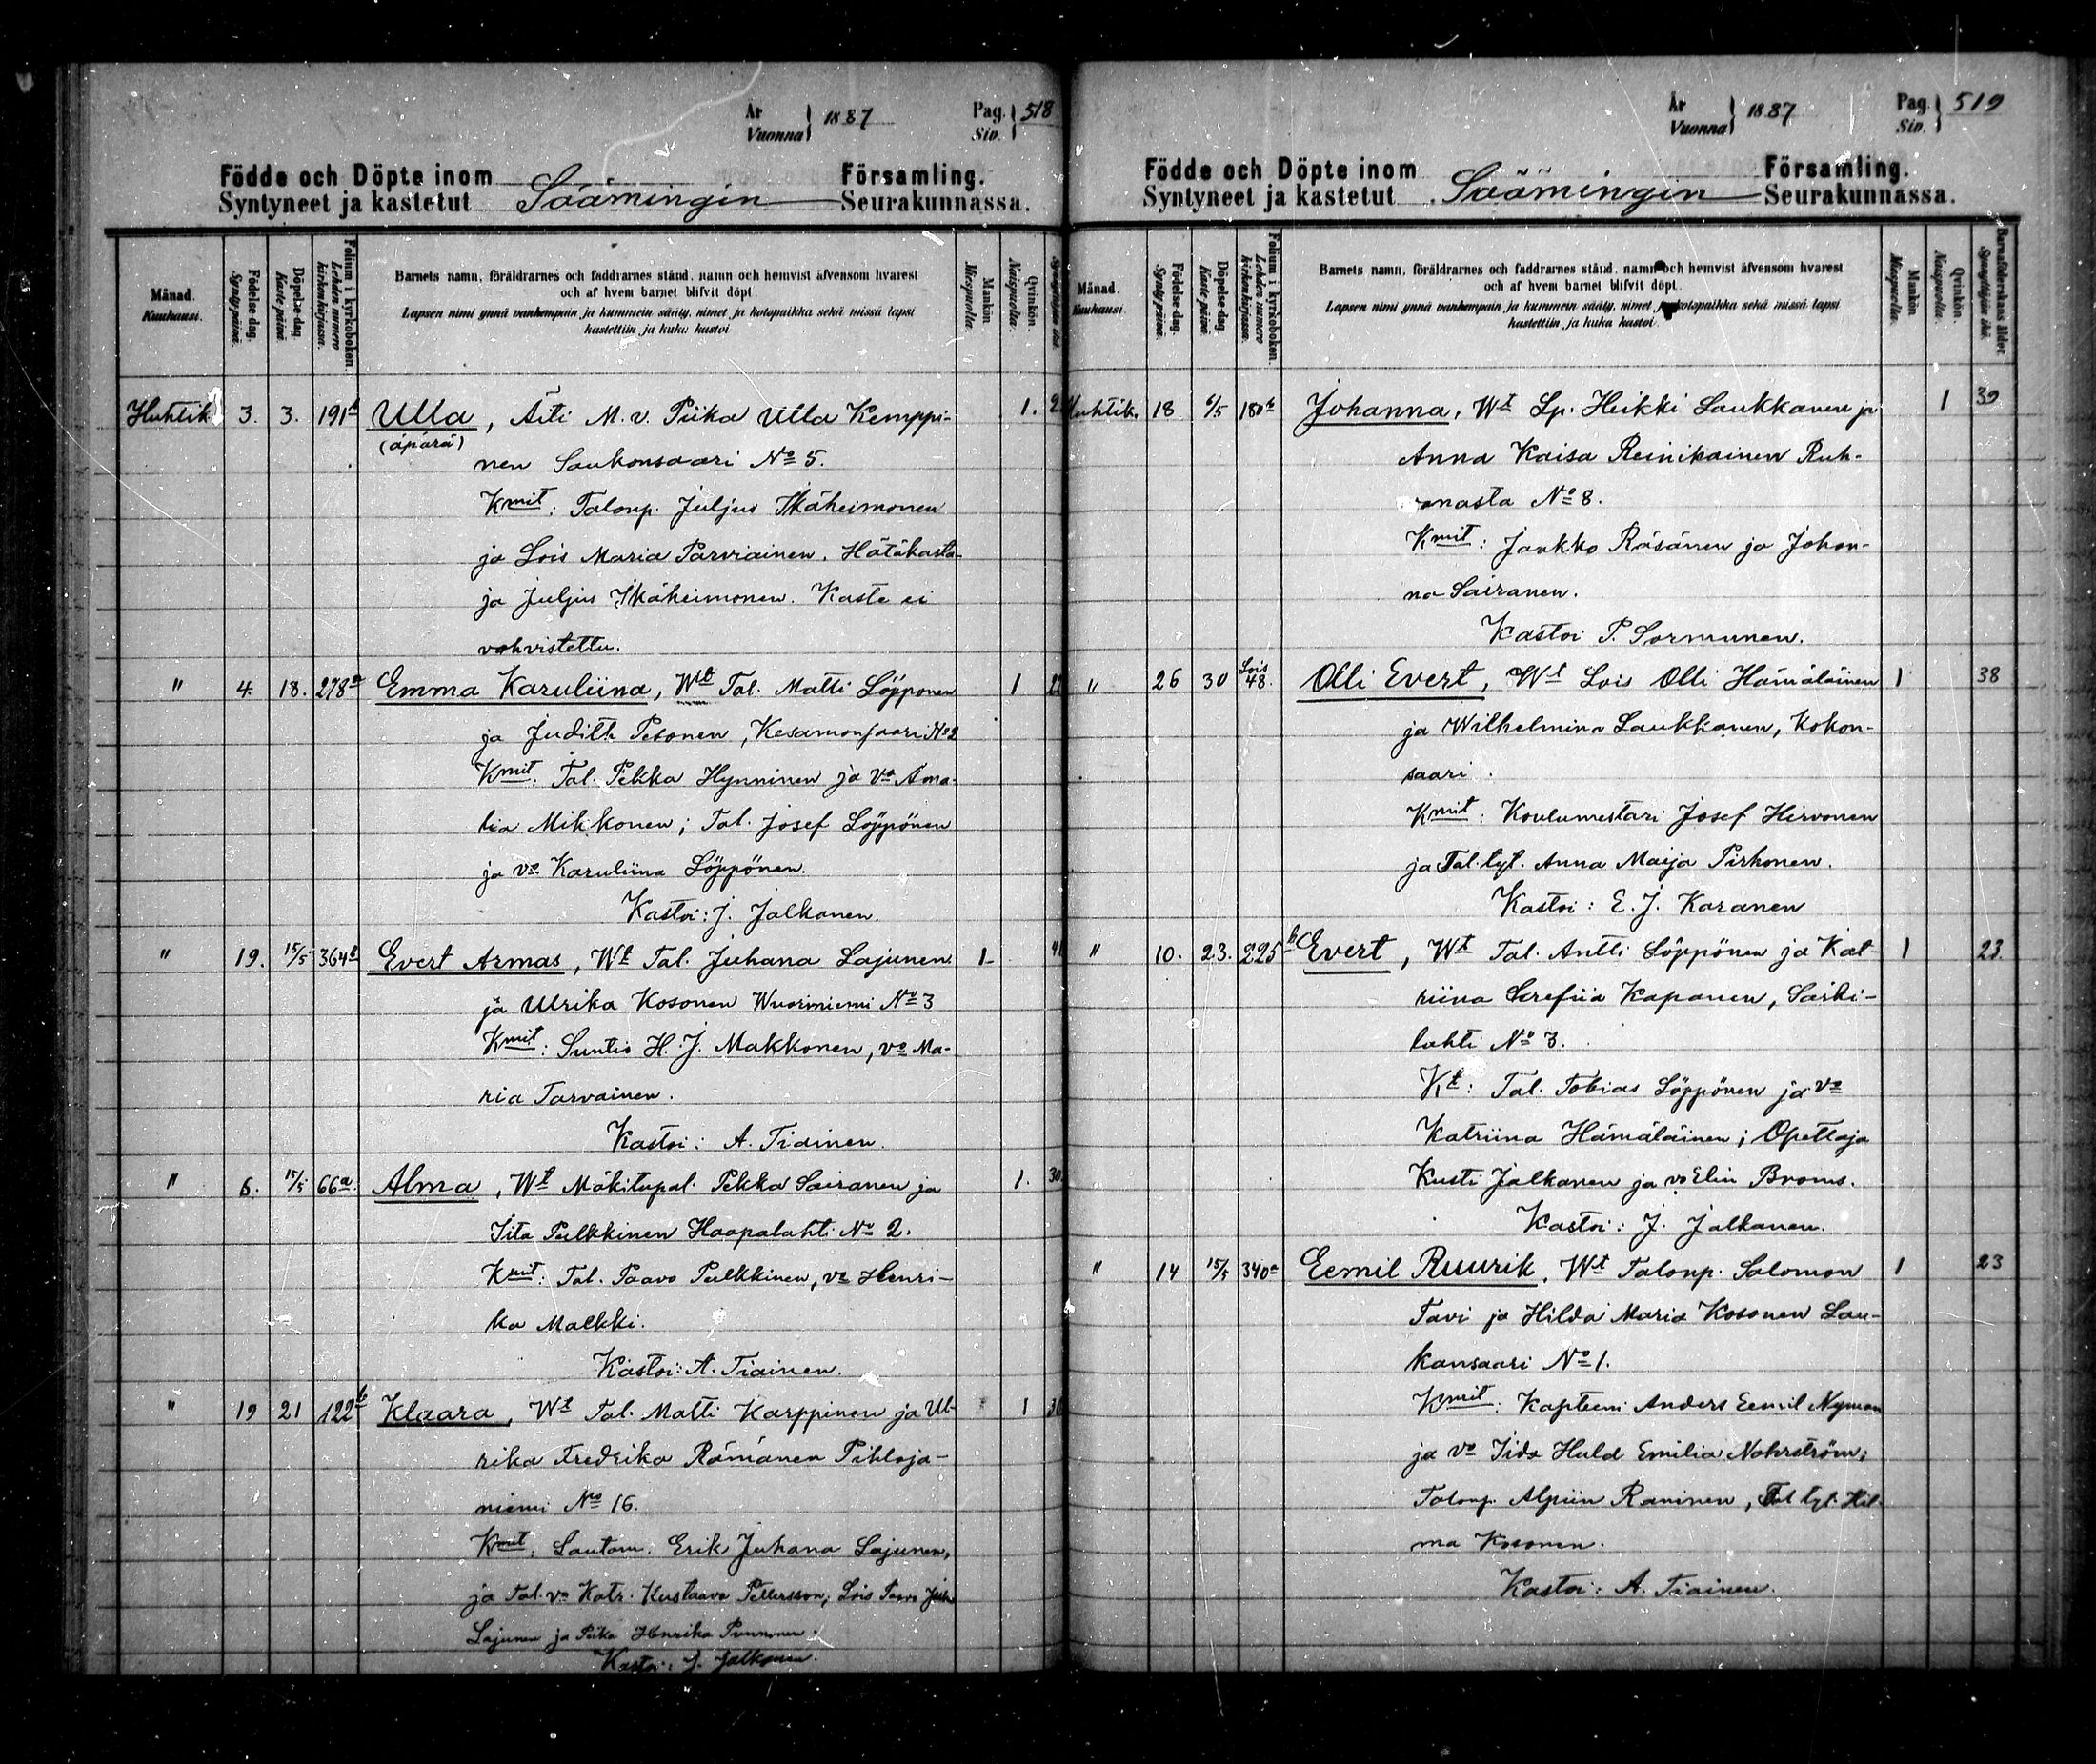 År
Vuonna } 1887 Pag. Siv. } 518
Födde och Döpte inom Församling.
Syntyneet ja kastetut Säämingin Seurakunnassa.
Månad. Kuukausi.
Födelse-dag. Syntypäivä.
Döpelse-dag Kaste-päivä
Folium i kyrkoboken. Lehden numero kirkonkirjassa.
Barnets namn, föräldrarnes och faddrarnes stånd, namn och hemvist äfvensom hvarest
och af hvem barnet blifvit döpt
Lapsen nimi ynnä vanhempain ja kummein sääty, nimet ja kotopaikka sekä missä lapsi
kastettiin ja kuka kastoi
Mankön Miespuolia.
Qvinkön. Naispuolia.
Huhtik. 3. 3. 191b Ulla, Äiti M. v. Piika Ulla Kemppi- 1.
(äpärä)
nen Saukonsaari No 5.
Kmit: Talonp. Juljus Ikäheimonen
ja Lois Maria Parviainen. Hätäkasta-
ja Juljus Ikäheimonen. Kaste ei
vahvistettu.
" 4. 18. 278a Emma Karuliina, Wt Tal. Matti Löppönen 1
ja Judith Pesonen, Kesamonsaari No 2
Kmit: Tal. Pekka Hynninen ja vo Ama-
lia Mikkonen; Tal. Josef Löppönen
ja vo Karuliina Löppönen.
Kastoi: J. Jalkanen.
" 19. 15/5 364b Evert Armas, Wt Tal. Juhana Lajunen 1 41
ja Ulrika Kosonen Wuoriniemi No 3
Kmit: Suntio H. J. Makkonen, vo Ma-
ria Tarvainen.
Kastoi: A. Tiainen.
" 6. 15/5 66a Alma, Wt Mäkitupal. Pekka Sairanen ja 1. 30.
Iita Pulkkinen Haapalahti No 2.
Kmit: Tal. Paavo Pulkkinen, vo Henri-
ka Malkki.
Kastoi: A. Tiainen.
" 19 21 122b Klaara, Wt Tal. Matti Karppinen ja Ul- 1
rika Fredrika Rämänen Pihlaja-
niemi No 16.
Kmit: Lautam. Erik Juhana Lajunen,
ja Tal. vo Katr. Kustaava Pettersson; Lois Paavo Juh.
Lajunen ja Piika Henrika Punnonen.
Kastoi: J. Jalkanen.
År
Vuonna } 1887 Pag. Siv. } 519
Födde och Döpte inom Församling.
Syntyneet ja kastetut Säämingin Seurakunnassa.
Månad. Kuukausi.
Födelse-dag. Syntypäivä.
Döpelse-dag. Kaste-päivä
Folium i kyrkoboken. Lehden numero kirkonkirjassa.
Barnets namn, föräldrarnes och faddrarnes stånd, namn och hemvist äfvensom hvarest
och af hvem barnet blifvit döpt.
Lapsen nimi ynnä vanhempain ja kummein sääty, nimet ja kotopaikka sekä missä lapsi
kastettiin ja kuka kastoi.
Mankön Miespuolia.
Qvinkön. Naispuolia.
Barnaföderskans ålder. Synnyttäjän ikä.
Huhtik. 18 6/5 180b Johanna, Wt Lp. Heikki Laukkanen ja 1 39
Anna Kaisa Reinikainen Ruh-
anasta No 8.
Kmit: Jaakko Räsänen ja Johan-
na Sairanen.
Kastoi P. Sormunen.
" 26 30 Lois 48. Olli Evert, Wt Lois Olli Hämäläinen 1 38
ja Wilhelmina Laukkanen, Kokon-
saari.
Kmit: Koulumestari Josef Hirvonen
ja Tal. tyt. Anna Maija Pirhonen.
Kastoi: E. J. Karanen
" 10. 23. 225b Evert, Wt Tal. Antti Löppönen ja Kat- 1 23.
riina Serefiia Kapanen, Särki-
lahti No 3.
Kt: Tal. Tobias Löppönen ja vo
Katriina Hämäläinen; Opettaja
Kusti Jalkanen ja vo Elin Broms.
Kastoi: J. Jalkanen.
" 14 15/5 340a Eemil Ruurik, Wt Talonp. Salomon 1 23
Tavi ja Hilda Maria Kosonen Lau-
kansaari No 1.
Kmit: Kapteeni Anders Eemil Nyman
ja vo Iida Huld Emilia Nohrström;
Talonp. Alpiin Raninen, Tal. tyt. Hil-
ma Kosonen.
Kastoi: A. Tiainen.